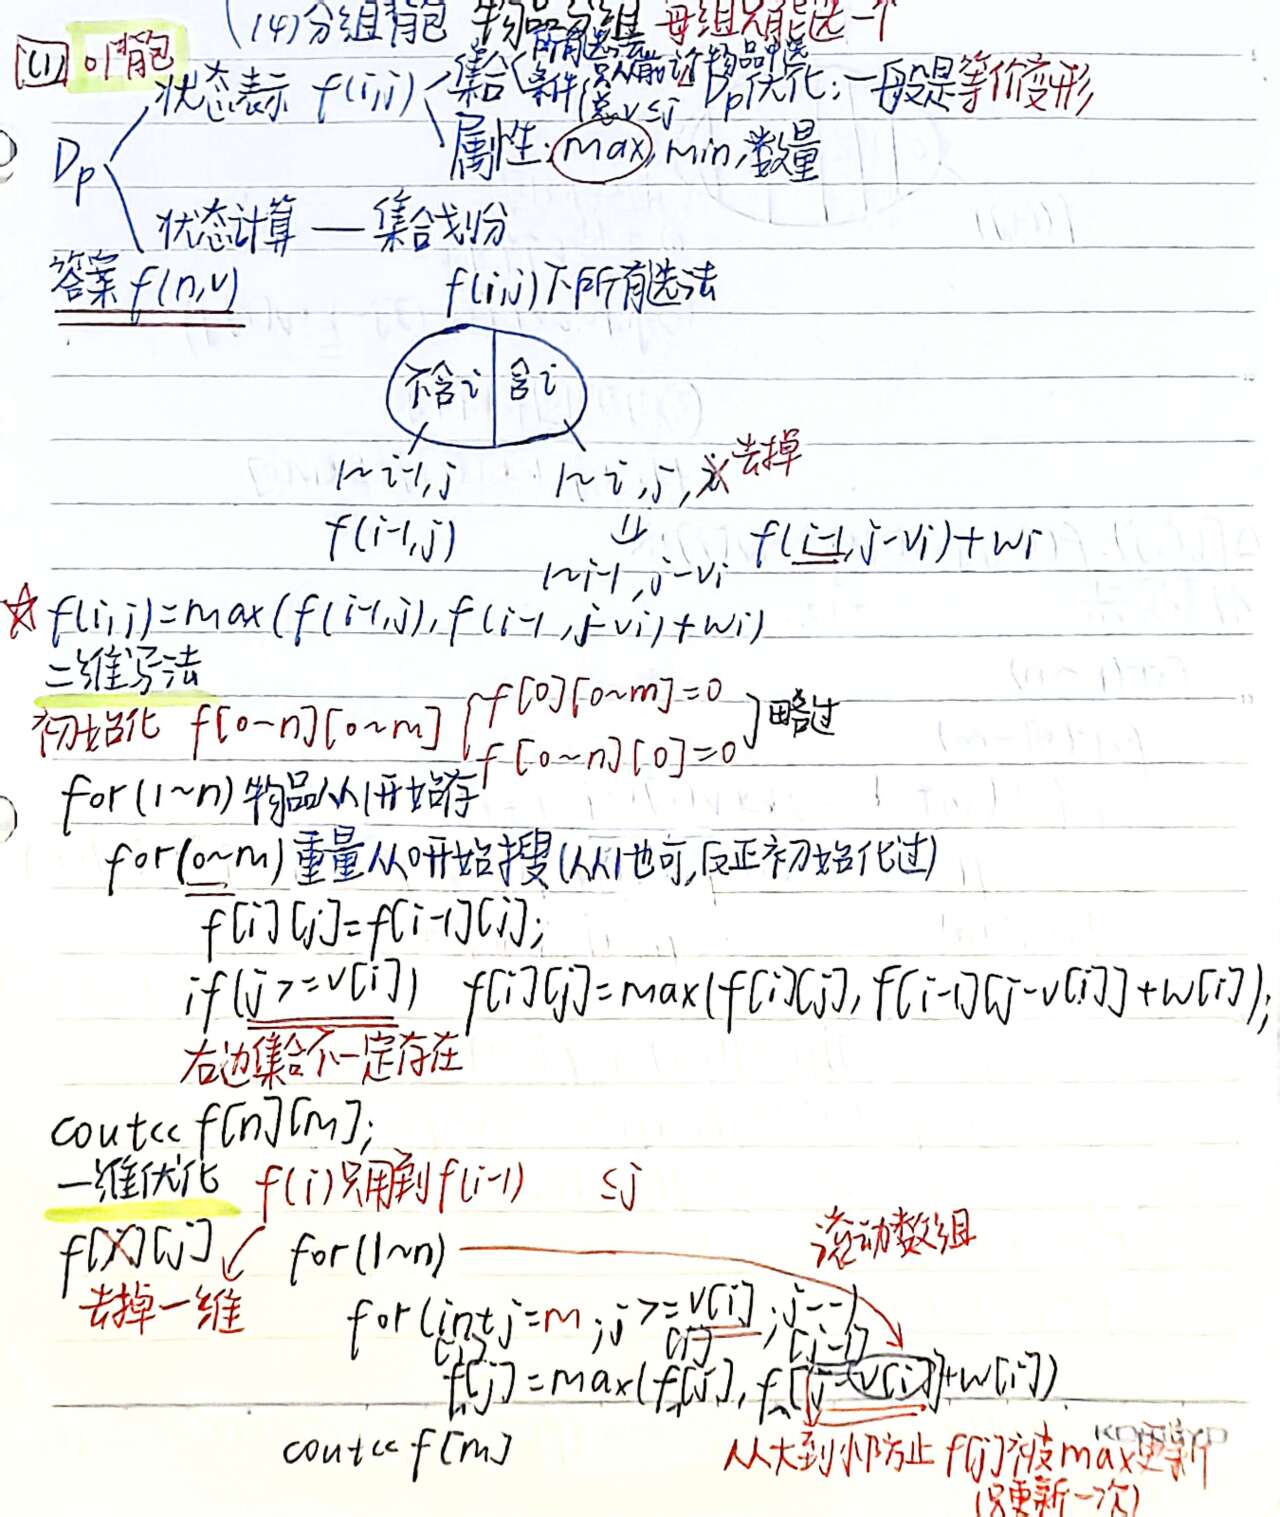 (14)分组背包 物品分组 每组只能选一个
(1) 01背包
Dp
状态表示 f(i,j)
集合 所有选法
条件 只从前i个物品中选
总v≤j
Dp优化:一般是等价变形
属性:max,min,数量
状态计算 — 集合划分
答案 f(n,v)
f(i,j)下所有选法
不含i 含i
1~i-1,j 1~i,j, 去掉
f(i-1,j) ⇓ f(i-1,j-vi)+wi
1~i-1,j-vi
☆ f(i,j)=max(f(i-1,j),f(i-1,j-vi)+wi)
二维写法
初始化 f[0~n][0~m] { f[0][0~m]=0
f[0~n][0]=0 } 略过
for(1~n) 物品从1开始存
for(0~m) 重量从0开始搜(从1也可,反正初始化过)
f[i][j]=f[i-1][j];
if(j>=v[i]) f[i][j]=max(f[i][j],f[i-1][j-v[i]]+w[i]);
右边集合不一定存在
cout<< f[n][m];
一维优化 f(i)只用到f(i-1) ≤j
f[i][j] 去掉一维
for(1~n) 滚动数组
for(int j=m;j>=v[i];j--)
[i] [i] [i-1]
f[j]=max(f[j],f[j-v[i]]+w[i])
cout<< f[m]
从大到小防止 f[j]被max更新
(只更新一次)
KOKUYO